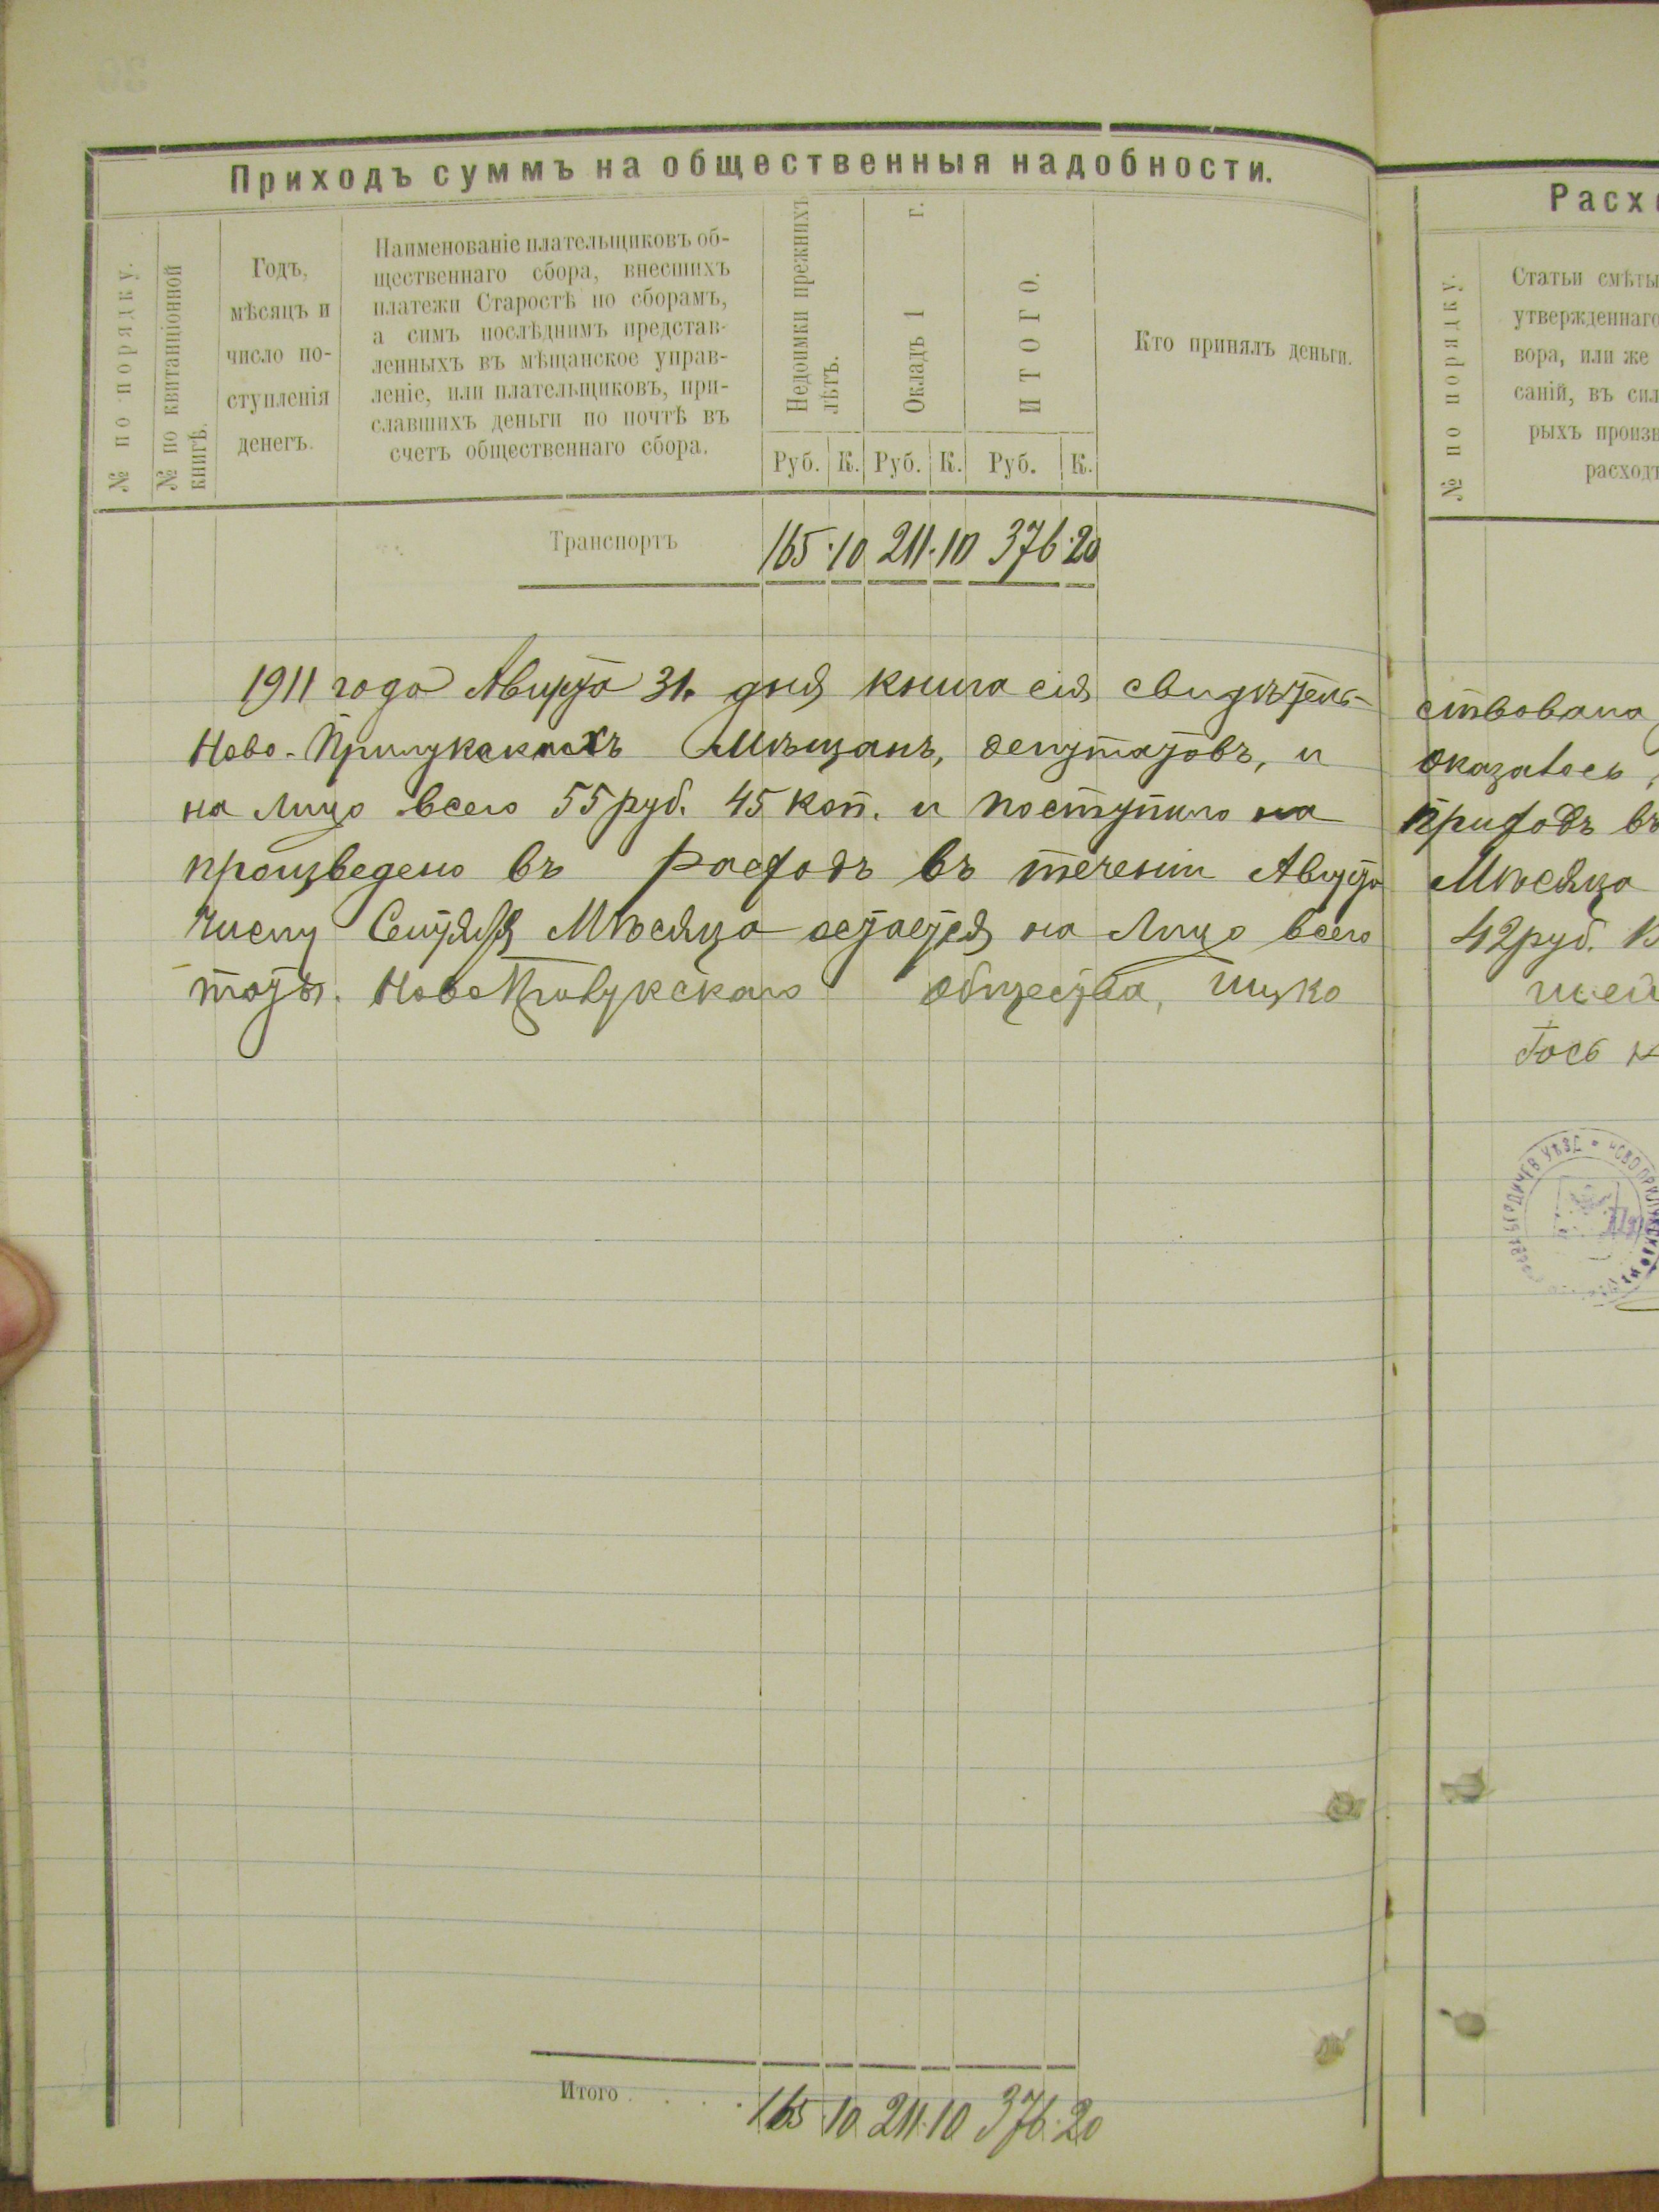 Приходъ суммъ на общественныя надобности.
№ по порядку.
№ по квитанціонной
книгѣ.
Годъ,
мѣсяцъ и
число по-
ступленія
денегъ.
Наименованіе плательщиковъ об-
щественнаго сбора, внесшихъ
платежи Старостѣ по сборамъ,
а симъ послѣднимъ представ-
ленныхъ въ мѣщанское управ-
леніе, или плательщиковъ, при-
славшихъ деньги по почтѣ въ
счетъ общественнаго сбора.
Недоимки прежнихъ
лѣтъ.
Окладъ 1 г.
ИТОГО.
Руб. К. Руб. К. Руб. К.
Кто принялъ деньги.
Транспортъ 165 10 211 10 376 20
1911 года Августа 31. дня книга сія свидѣтель-
Ново-Прилукскихъ Мѣщанъ, депутатовъ, и
на лицо всего 55 руб. 45 коп. и поступило на
произведено въ расходъ въ теченіи Августа
числу Сентября Мѣсяца остается на Лицо всего
Ново Прилукскаго общества,
Итого 165 10 211 10 376 20
Расхо
№ по порядку.
Статьи смѣты
утвержденнаго
вора, или же
саній, въ сил
рыхъ произв
расходъ
ствована
оказалось
приходъ въ
Мѣсяца
42 руб.